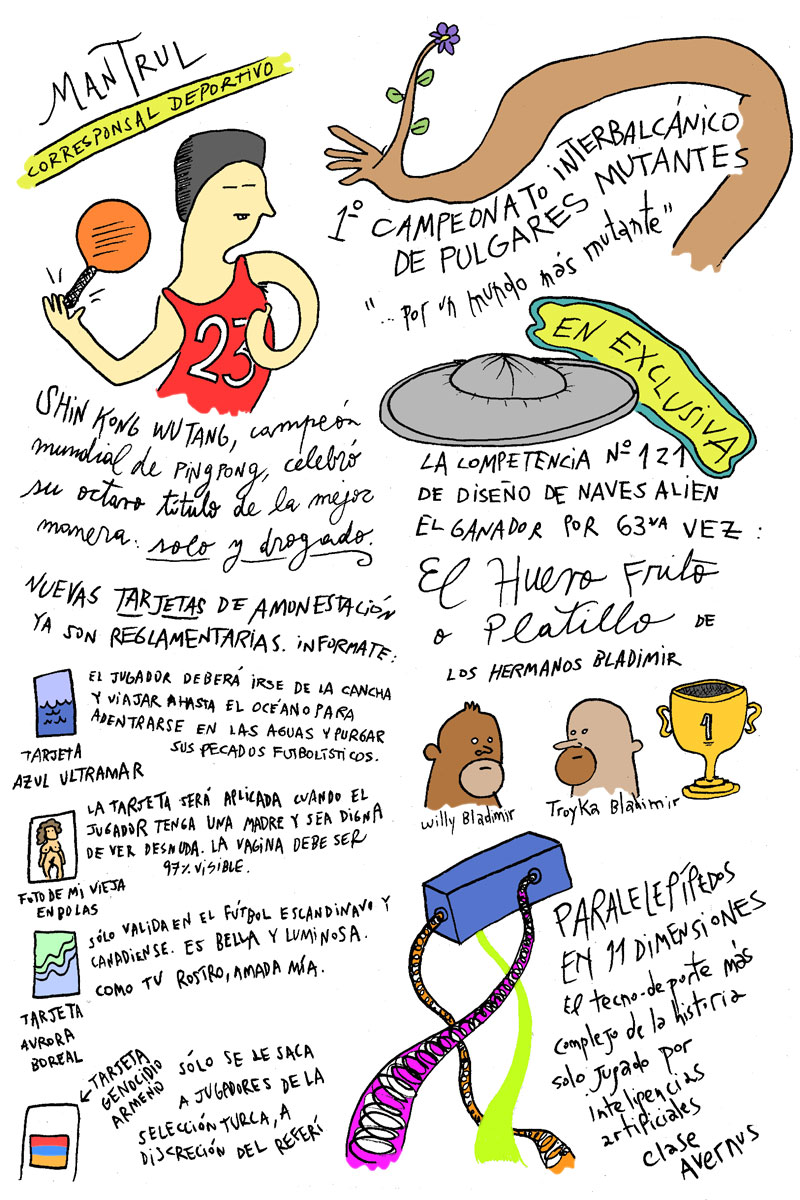 MANTRUL
CORRESPONSAL DEPORTIVO
23
SHIN KONG WUTANG, campeón
mundial de PINGPONG, celebró
su octavo título de la mejor
manera: solo y drogado.
NUEVAS TARJETAS DE AMONESTACIÓN
YA SON REGLAMENTARIAS. INFORMATE:
EL JUGADOR DEBERÁ IRSE DE LA CANCHA
Y VIAJAR HASTA EL OCÉANO PARA
ADENTRARSE EN LAS AGUAS Y PURGAR
SUS PECADOS FUTBOLÍSTICOS.
TARJETA
AZUL ULTRAMAR
LA TARJETA SERÁ APLICADA CUANDO EL
JUGADOR TENGA UNA MADRE Y SEA DIGNA
DE VER DESNUDA. LA VAGINA DEBE SER
97% VISIBLE.
FOTO DE MI VIEJA
EN BOLAS
SÓLO VALIDA EN EL FÚTBOL ESCANDINAVO Y
CANADIENSE. ES BELLA Y LUMINOSA.
COMO TU ROSTRO, AMADA MÍA.
TARJETA
AURORA
BOREAL
TARJETA
GENOCIDIO
ARMENIO
SÓLO SE LE SACA
A JUGADORES DE LA
SELECCIÓN TURCA, A
DISCRECIÓN DEL REFERÍ
1º CAMPEONATO INTERBALCÁNICO
DE PULGARES MUTANTES
"...por un mundo más mutante"
EN EXCLUSIVA
LA COMPETENCIA Nº 121
DE DISEÑO DE NAVES ALIEN
EL GANADOR POR 63VA VEZ:
El Huevo Frito
o Platillo DE
LOS HERMANOS BLADIMIR
1
Willy Bladimir
Troyka Bladimir
PARALELEPÍPEDOS
EN 11 DIMENSIONES
El tecno-deporte más
complejo de la historia
solo jugado por
inteligencias
artificiales
clase
Avernus